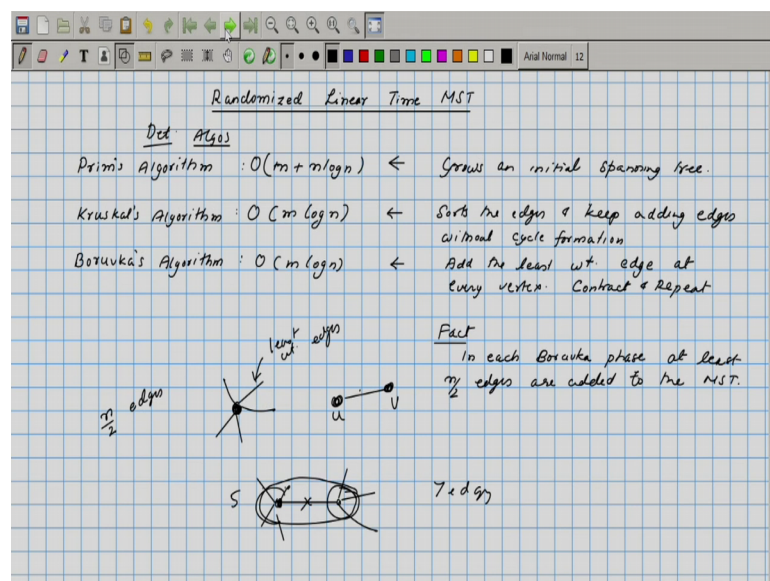 T
Arial Normal 12
Randomized Linear Time MST
Det. Algos
Prim's Algorithm : O(m + nlogn) ← Grows an initial spanning tree.
Kruskal's Algorithm : O(m logn) ← Sorts the edges & keep adding edges
without cycle formation
Boruvka's Algorithm : O(m logn) ← Add the least wt. edge at
every vertex. Contract & Repeat
Fact
In each Boruvka phase at least
n/2 edges are added to the MST.
least wt. edges
n/2 edges
u v
S 7 edges